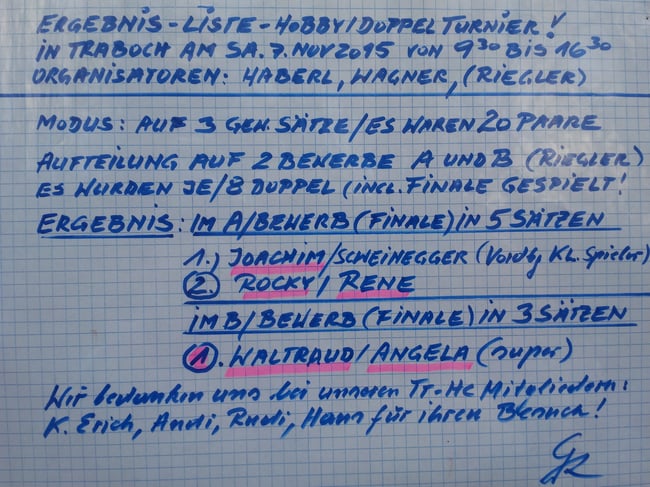 ERGEBNIS-LISTE-HOBBY/DOPPEL TURNIER!
IN TRABOCH AM SA. 7. NOV 2015 VON 9³⁰ BIS 16³⁰
ORGANISATOREN: HABERL, WAGNER, (RIEGLER)
MODUS: AUF 3 GEW. SÄTZE/ES WAREN 20 PAARE
AUFTEILUNG AUF 2 BEWERBE A UND B (RIEGLER)
ES WURDEN JE/8 DOPPEL (INCL. FINALE GESPIELT!
ERGEBNIS: IM A/BEWERB (FINALE) IN 5 SÄTZEN
1.) JOACHIM/SCHEINEGGER (Vordb, KL. Spieler)
2. ROCKY/RENE
IM B/BEWERB (FINALE) IN 3 SÄTZEN
1. WALTRAUD/ANGELA (super)
Wir bedanken uns bei unseren Tr-He Mitgliedern:
K. Erich, Andi, Rudi, Hans für ihren Besuch!